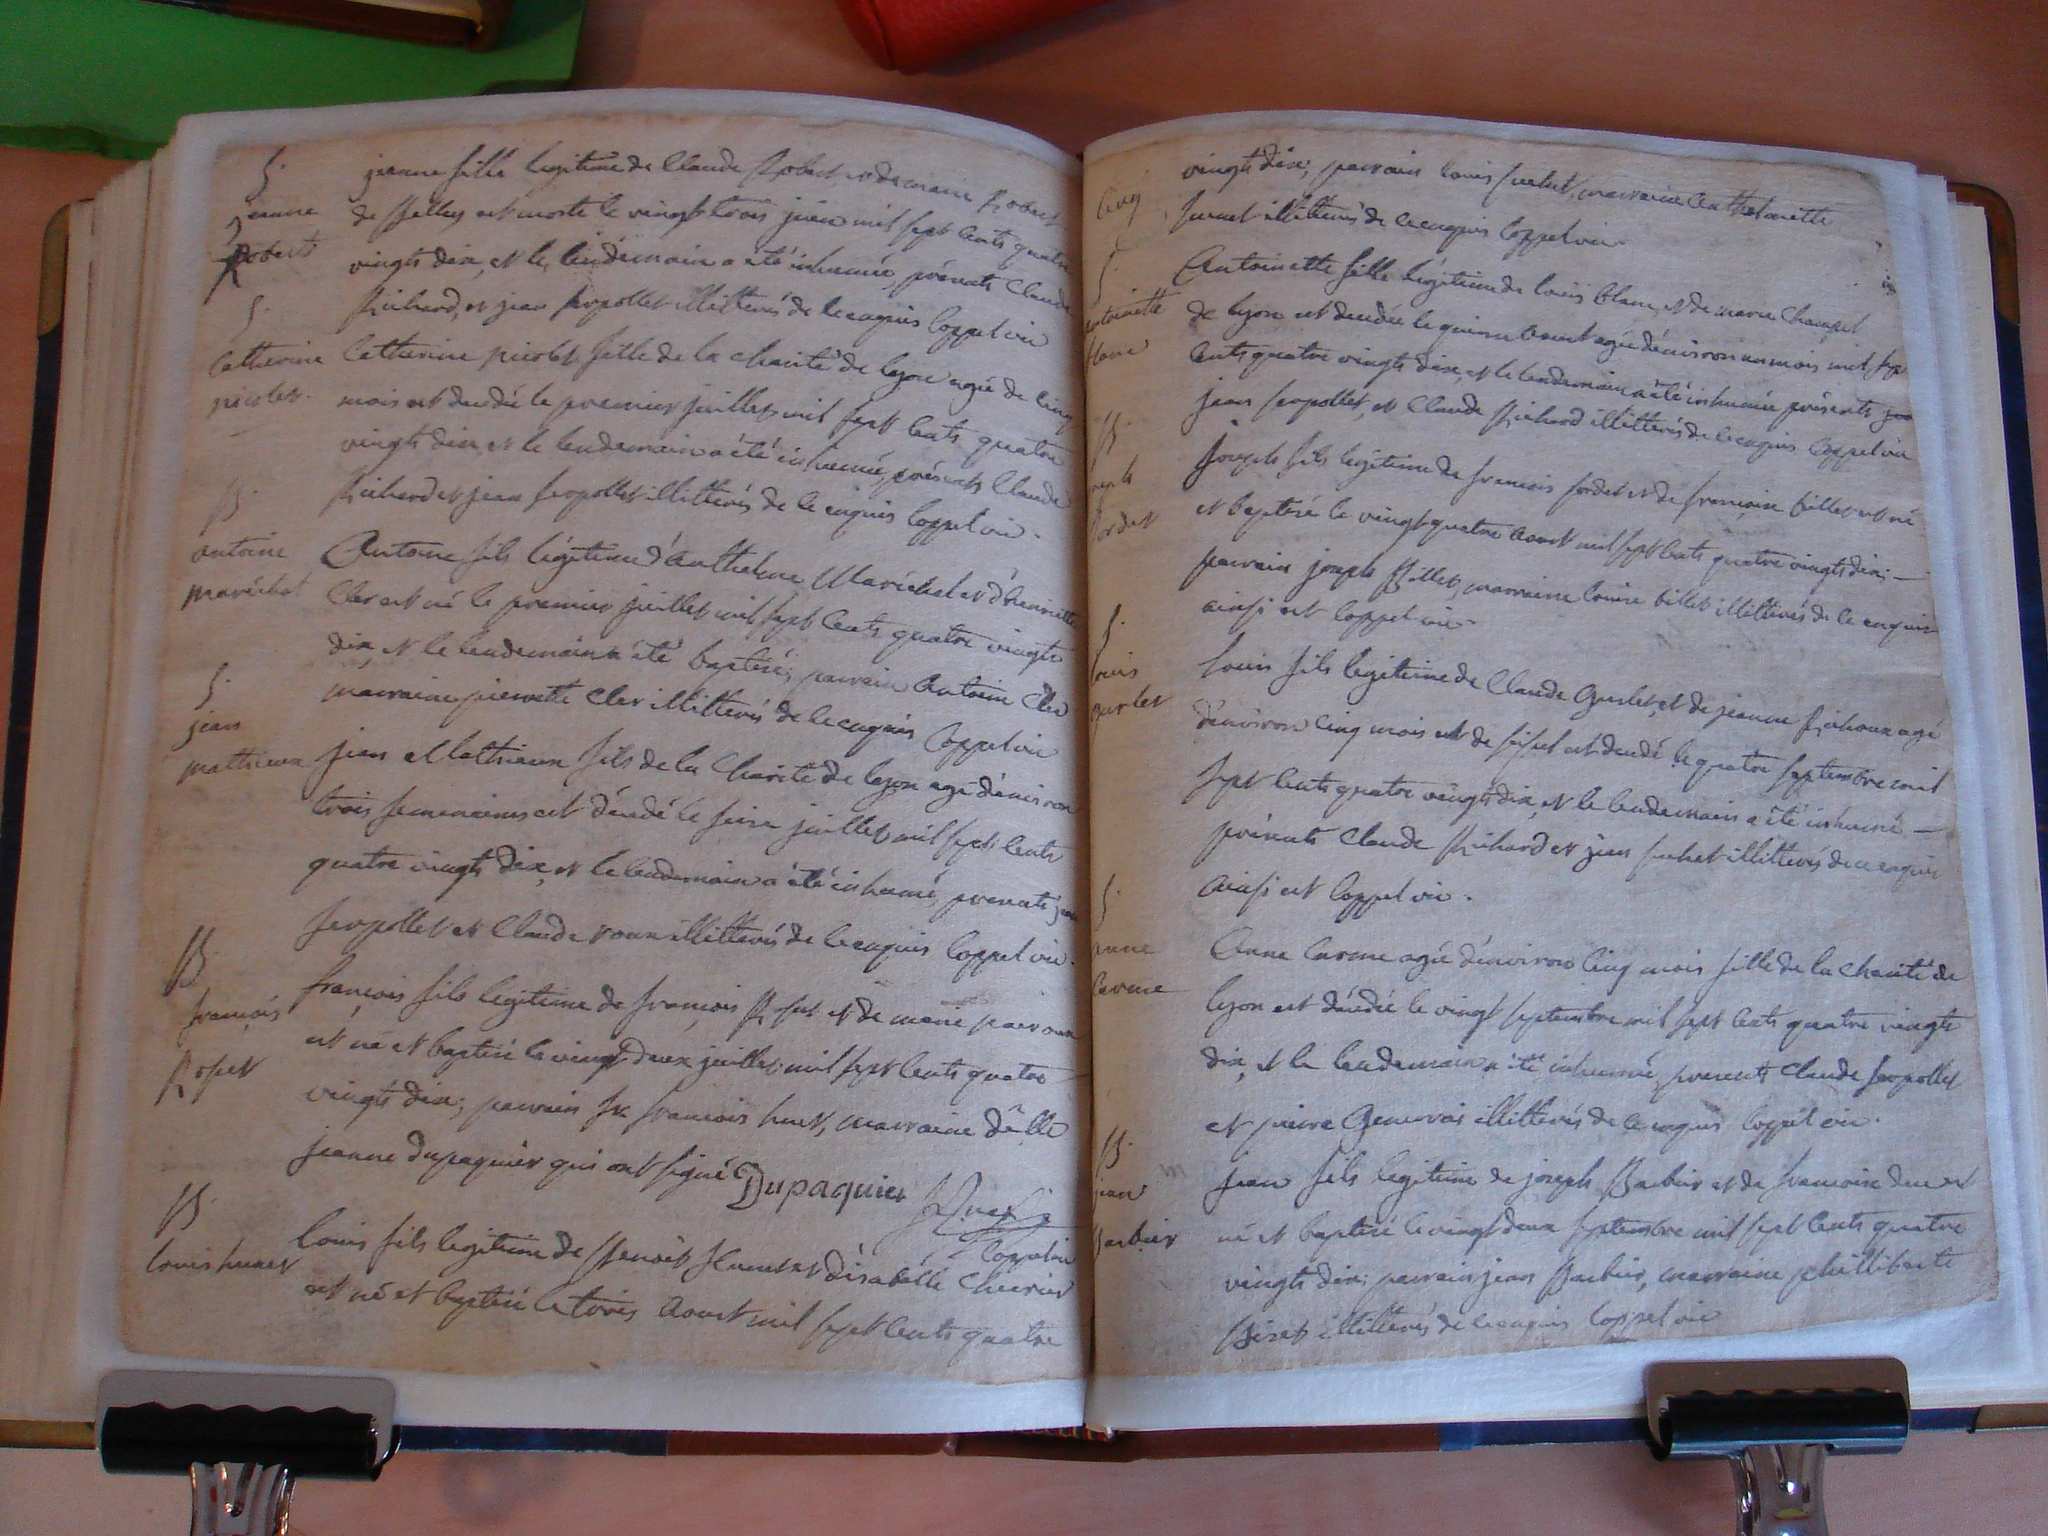 S.
jeanne
Robert
jeanne fille legitime de Claude Robert, et de marie Robert
de Belley est morte le vingt trois juin mil sept cents quatre
vingts dix, et le lendemain a été inhumée, présents Claude
Richard, et jean serpollet illitterés de ce enquis Coppel vic
S.
Catherine
picolet.
Catherine picolet fille de la charité de lyon agée de cinq
mois est décedée le premier juillet mil sept cents quatre
vingts dix, et le lendemain a été inhumée, présents Claude
Richard et jean serpollet illitterés de ce enquis Coppel vic.
B.
antoine
maréchal
Antoine fils légitime d'Anthelme Maréchal et d'henriette
Cler est né le premier juillet mil sept cents quatre vingts
dix, et le lendemain a été baptisé; parrain Antoine Cler
marraine pierrette Cler illitterés de ce enquis Coppel vic
S.
jean
mathieux
jean Mathieux fils de la Charité de lyon agé d'environ
trois semaines est décedé le seize juillet mil sept cents
quatre vingts dix, et le lendemain a été inhumé, presents jean
serpollet et Claude roux illitterés de ce enquis Coppel vic.
B.
françois
Roset
françois fils legitime de françois Roset et de marie
est né et baptisé le vingt deux juillet mil sept cents quatre
vingts dix; parrain sr françois huet, marraine delle
jeanne dupaquier qui ont signé Dupaquier
Coppel vic
B.
louis
louis fils legitime de Benoit et d'isabelle Cherier
est né et baptisé le trois Aoust mil sept cents quatre
vingts dix; parrain louis suchet, marraine Anthelmette
illitterés de ce enquis Coppel vic
S.
antoinette
blanc
Antoinette fille légitime de louis blanc, et de marie
de lyon est decedée le quinze Aoust agée d'environ un mois mil sept
Cents quatre vingts dix, et le lendemain a été inhumée présents
jean serpollet, et Claude Richard illitterés de ce enquis Coppel vic
B.
joseph
fordet
joseph fils legitime de francois fordet et de francoise billet est né
et baptisé le vingt quatre Aoust mil sept cents quatre vingts dix; —
parrain joseph Billet, marraine louise billet illitterés de ce enquis
ainsi est Coppel vic.
S.
louis
gurlet
louis fils legitime de Claude Gurlet, et de jeanne agé
d'environ cinq mois est décedé le quatre septembre mil
sept cents quatre vingts dix, et le lendemain a été inhumé —
présents Claude Richard et jean suchet illitterés de ce enquis
Ainsi est Coppel vic.
S.
anne
carme
Anne Carme agée d'environ cinq mois fille de la charité de
lyon est décédée le vingt septembre mil sept cents quatre vingts
dix, et le lendemain a été inhumée, presents Claude serpollet
et pierre Genevois illitterés de ce enquis Coppel vic.
B.
jean
Barbier
jean fils legitime de joseph Barbier et de francoise est
né et baptisé le vingt deux septembre mil sept cents quatre
vingts dix; parrain jean Barbier, marraine philliberte
Bizet illitterés de ce enquis Coppel vic